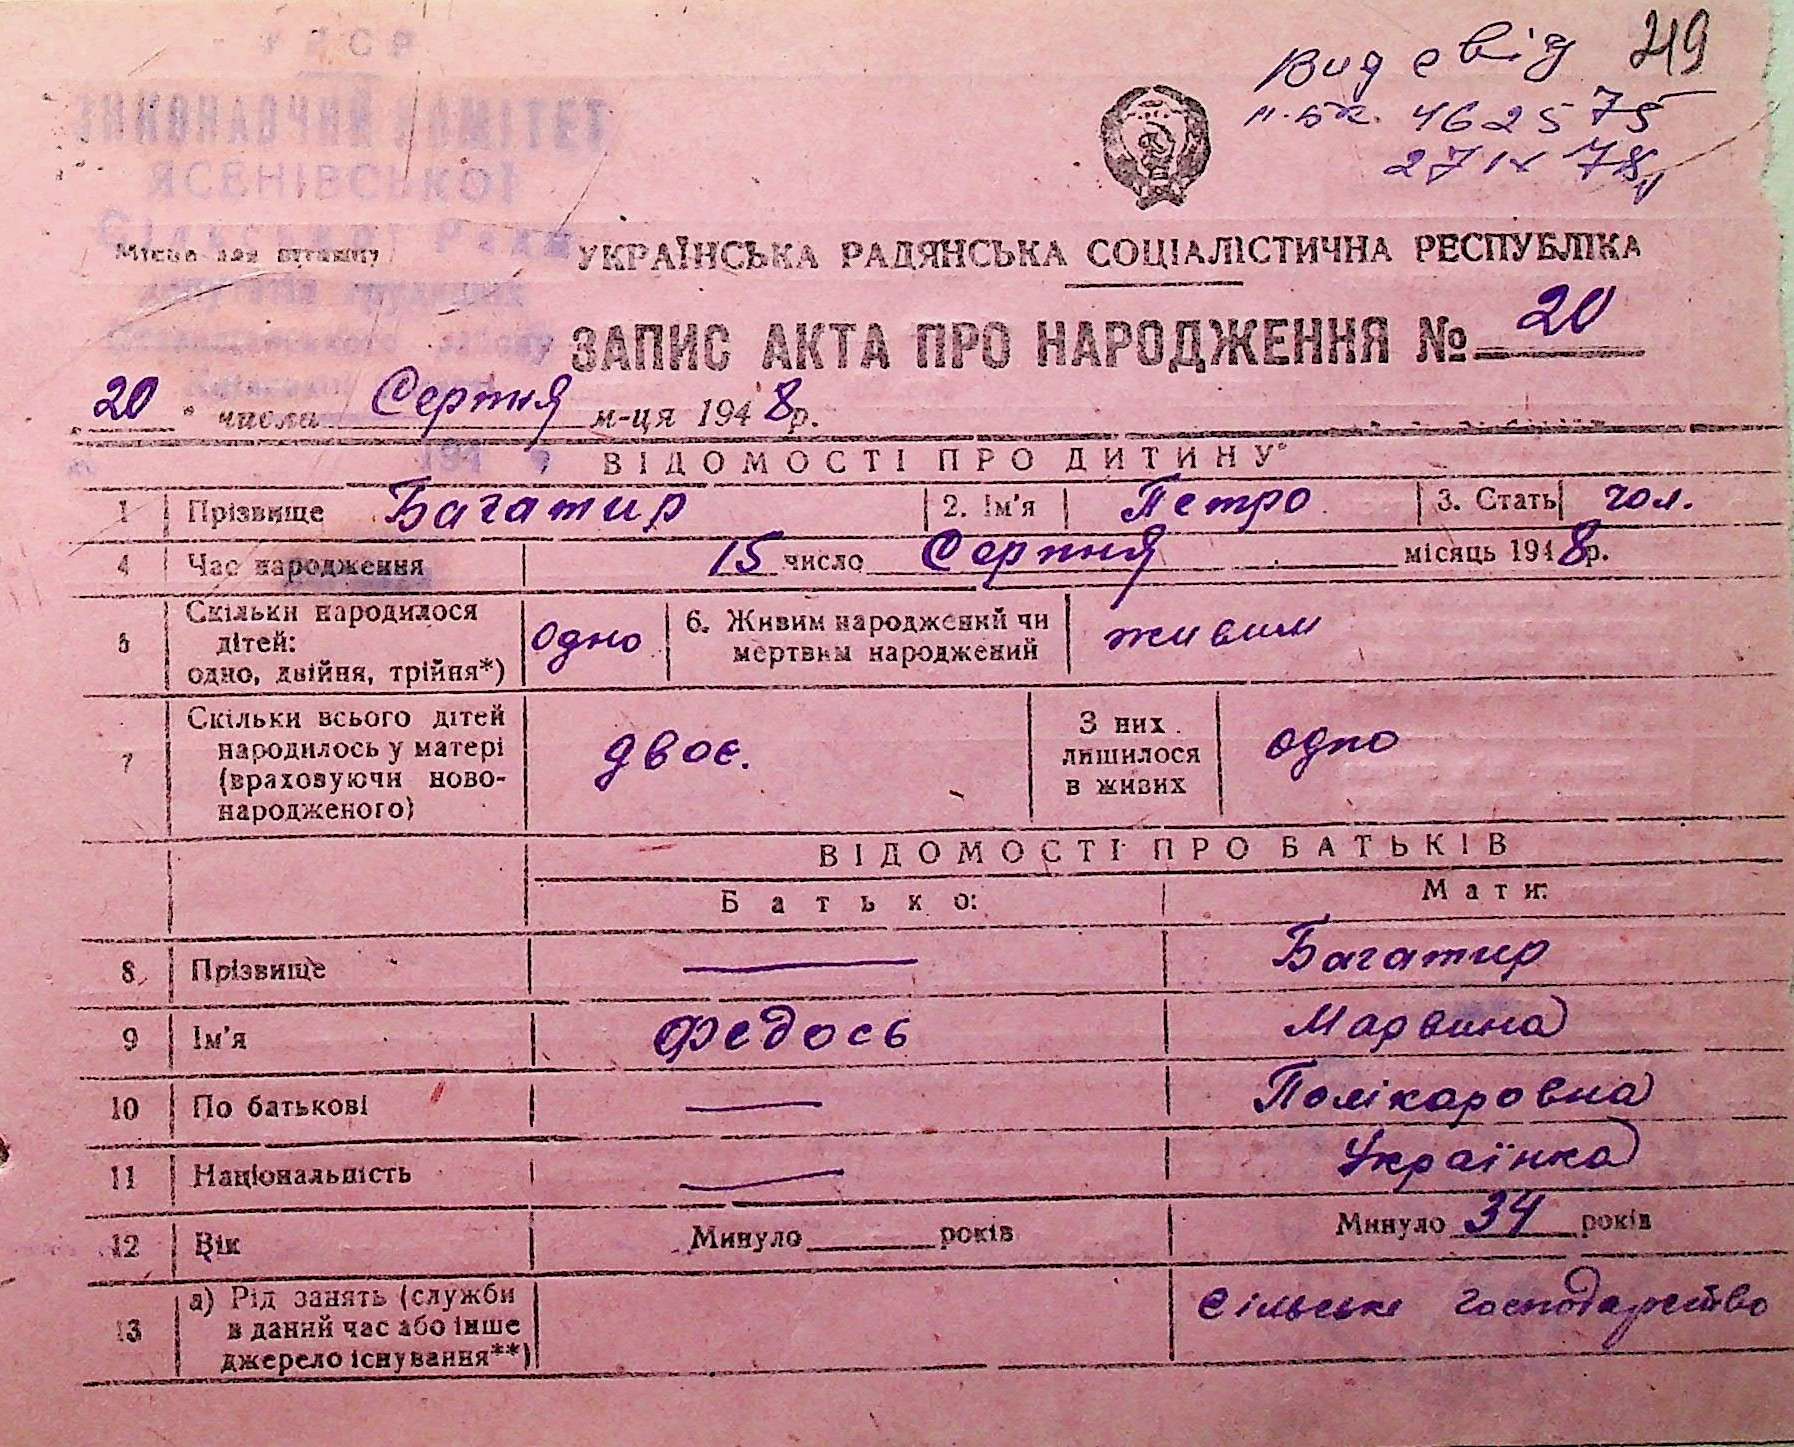 УРСР
ВИКОНАВЧИЙ КОМІТЕТ
ЯСЕНІВСЬКОЇ
Сільської Ради
депутатів трудящих
району
194 р
Вид свід 219
ІІ-БК. 4625 75
27 IX 78
Місце для штампу
УКРАЇНСЬКА РАДЯНСЬКА СОЦІАЛІСТИЧНА РЕСПУБЛІКА
ЗАПИС АКТА ПРО НАРОДЖЕННЯ № 20
„20“ числа Серпня м-ця 1948р.
ВІДОМОСТІ ПРО ДИТИНУ
1 Прізвище Багатир 2. Ім'я Петро 3. Стать чол.
4 Час народження 15 число Серпня місяць 1948р.
5 Скільки народилося дітей: одно, двійня, трійня*) одно 6. Живим народжений чи мертвим народжений живим
7 Скільки всього дітей народилось у матері (враховуючи новонародженого) двоє. З них лишилося в живих одно
ВІДОМОСТІ ПРО БАТЬКІВ
Батько: Мати:
8 Прізвище — Багатир
9 Ім'я Федось Марвина
10 По батькові — Полікаровна
11 Національність — Українка
12 Вік Минуло ____ років Минуло 34 років
13 а) Рід занять (служби в даний час або інше джерело існування**) Сільське господарство